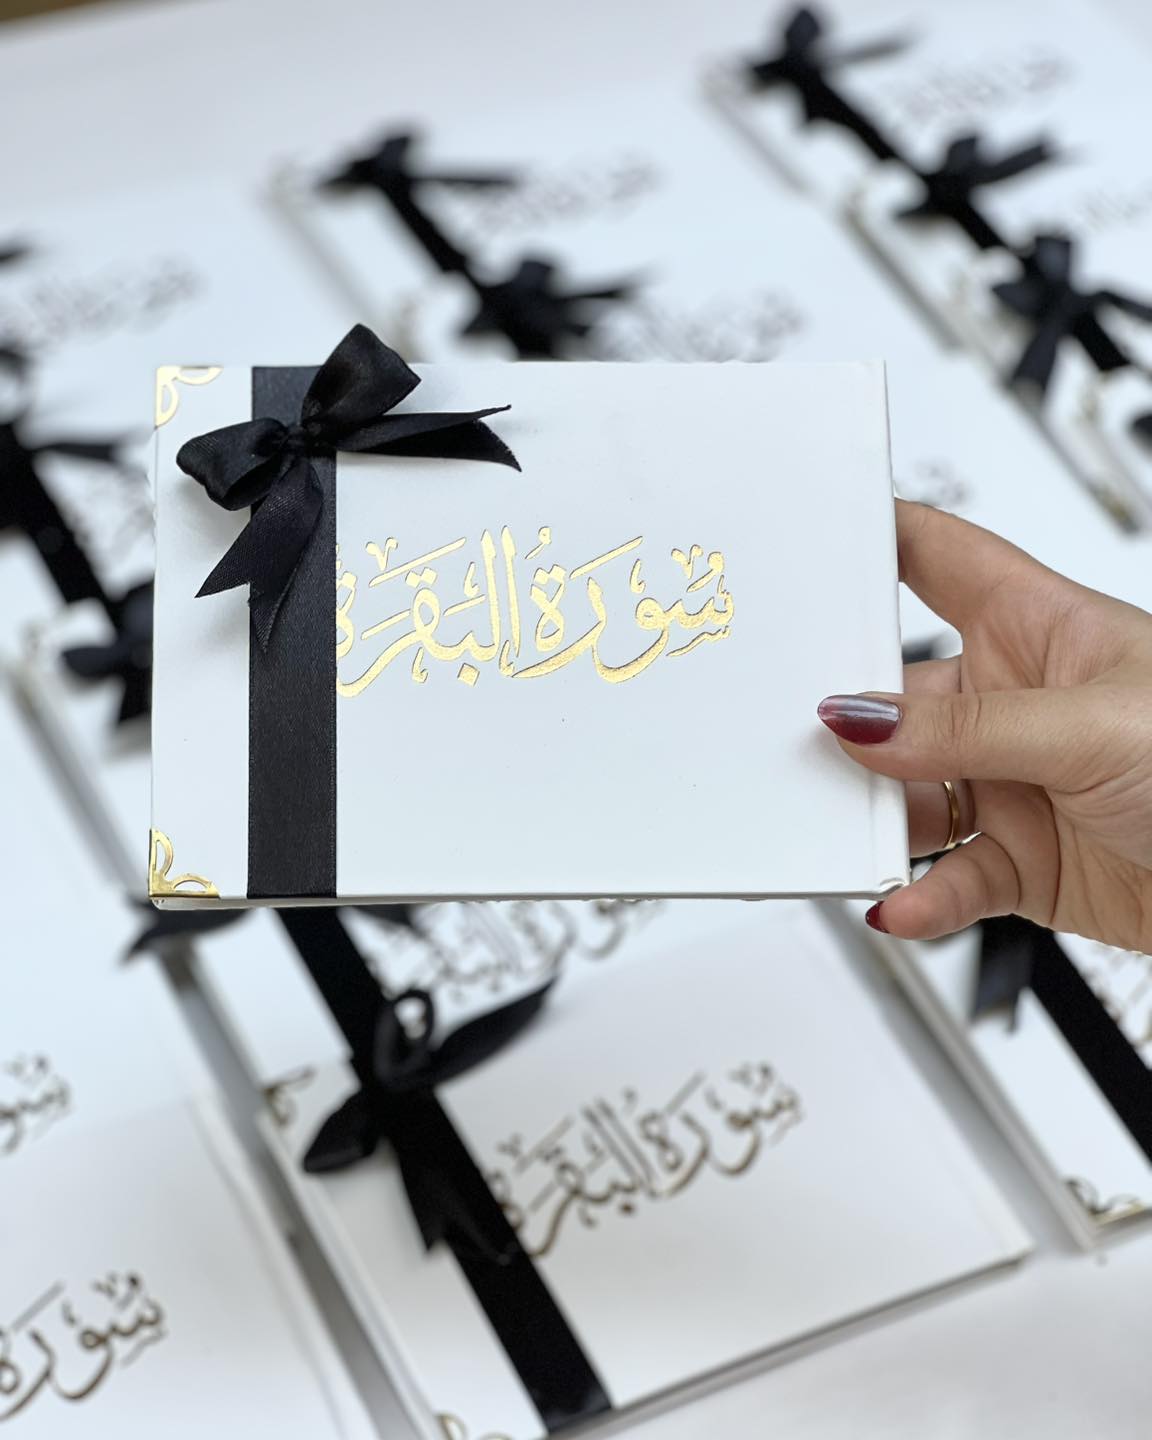 سُورَةُ البَقَرَة
سُورَةُ البَقَرَة
سُورَة